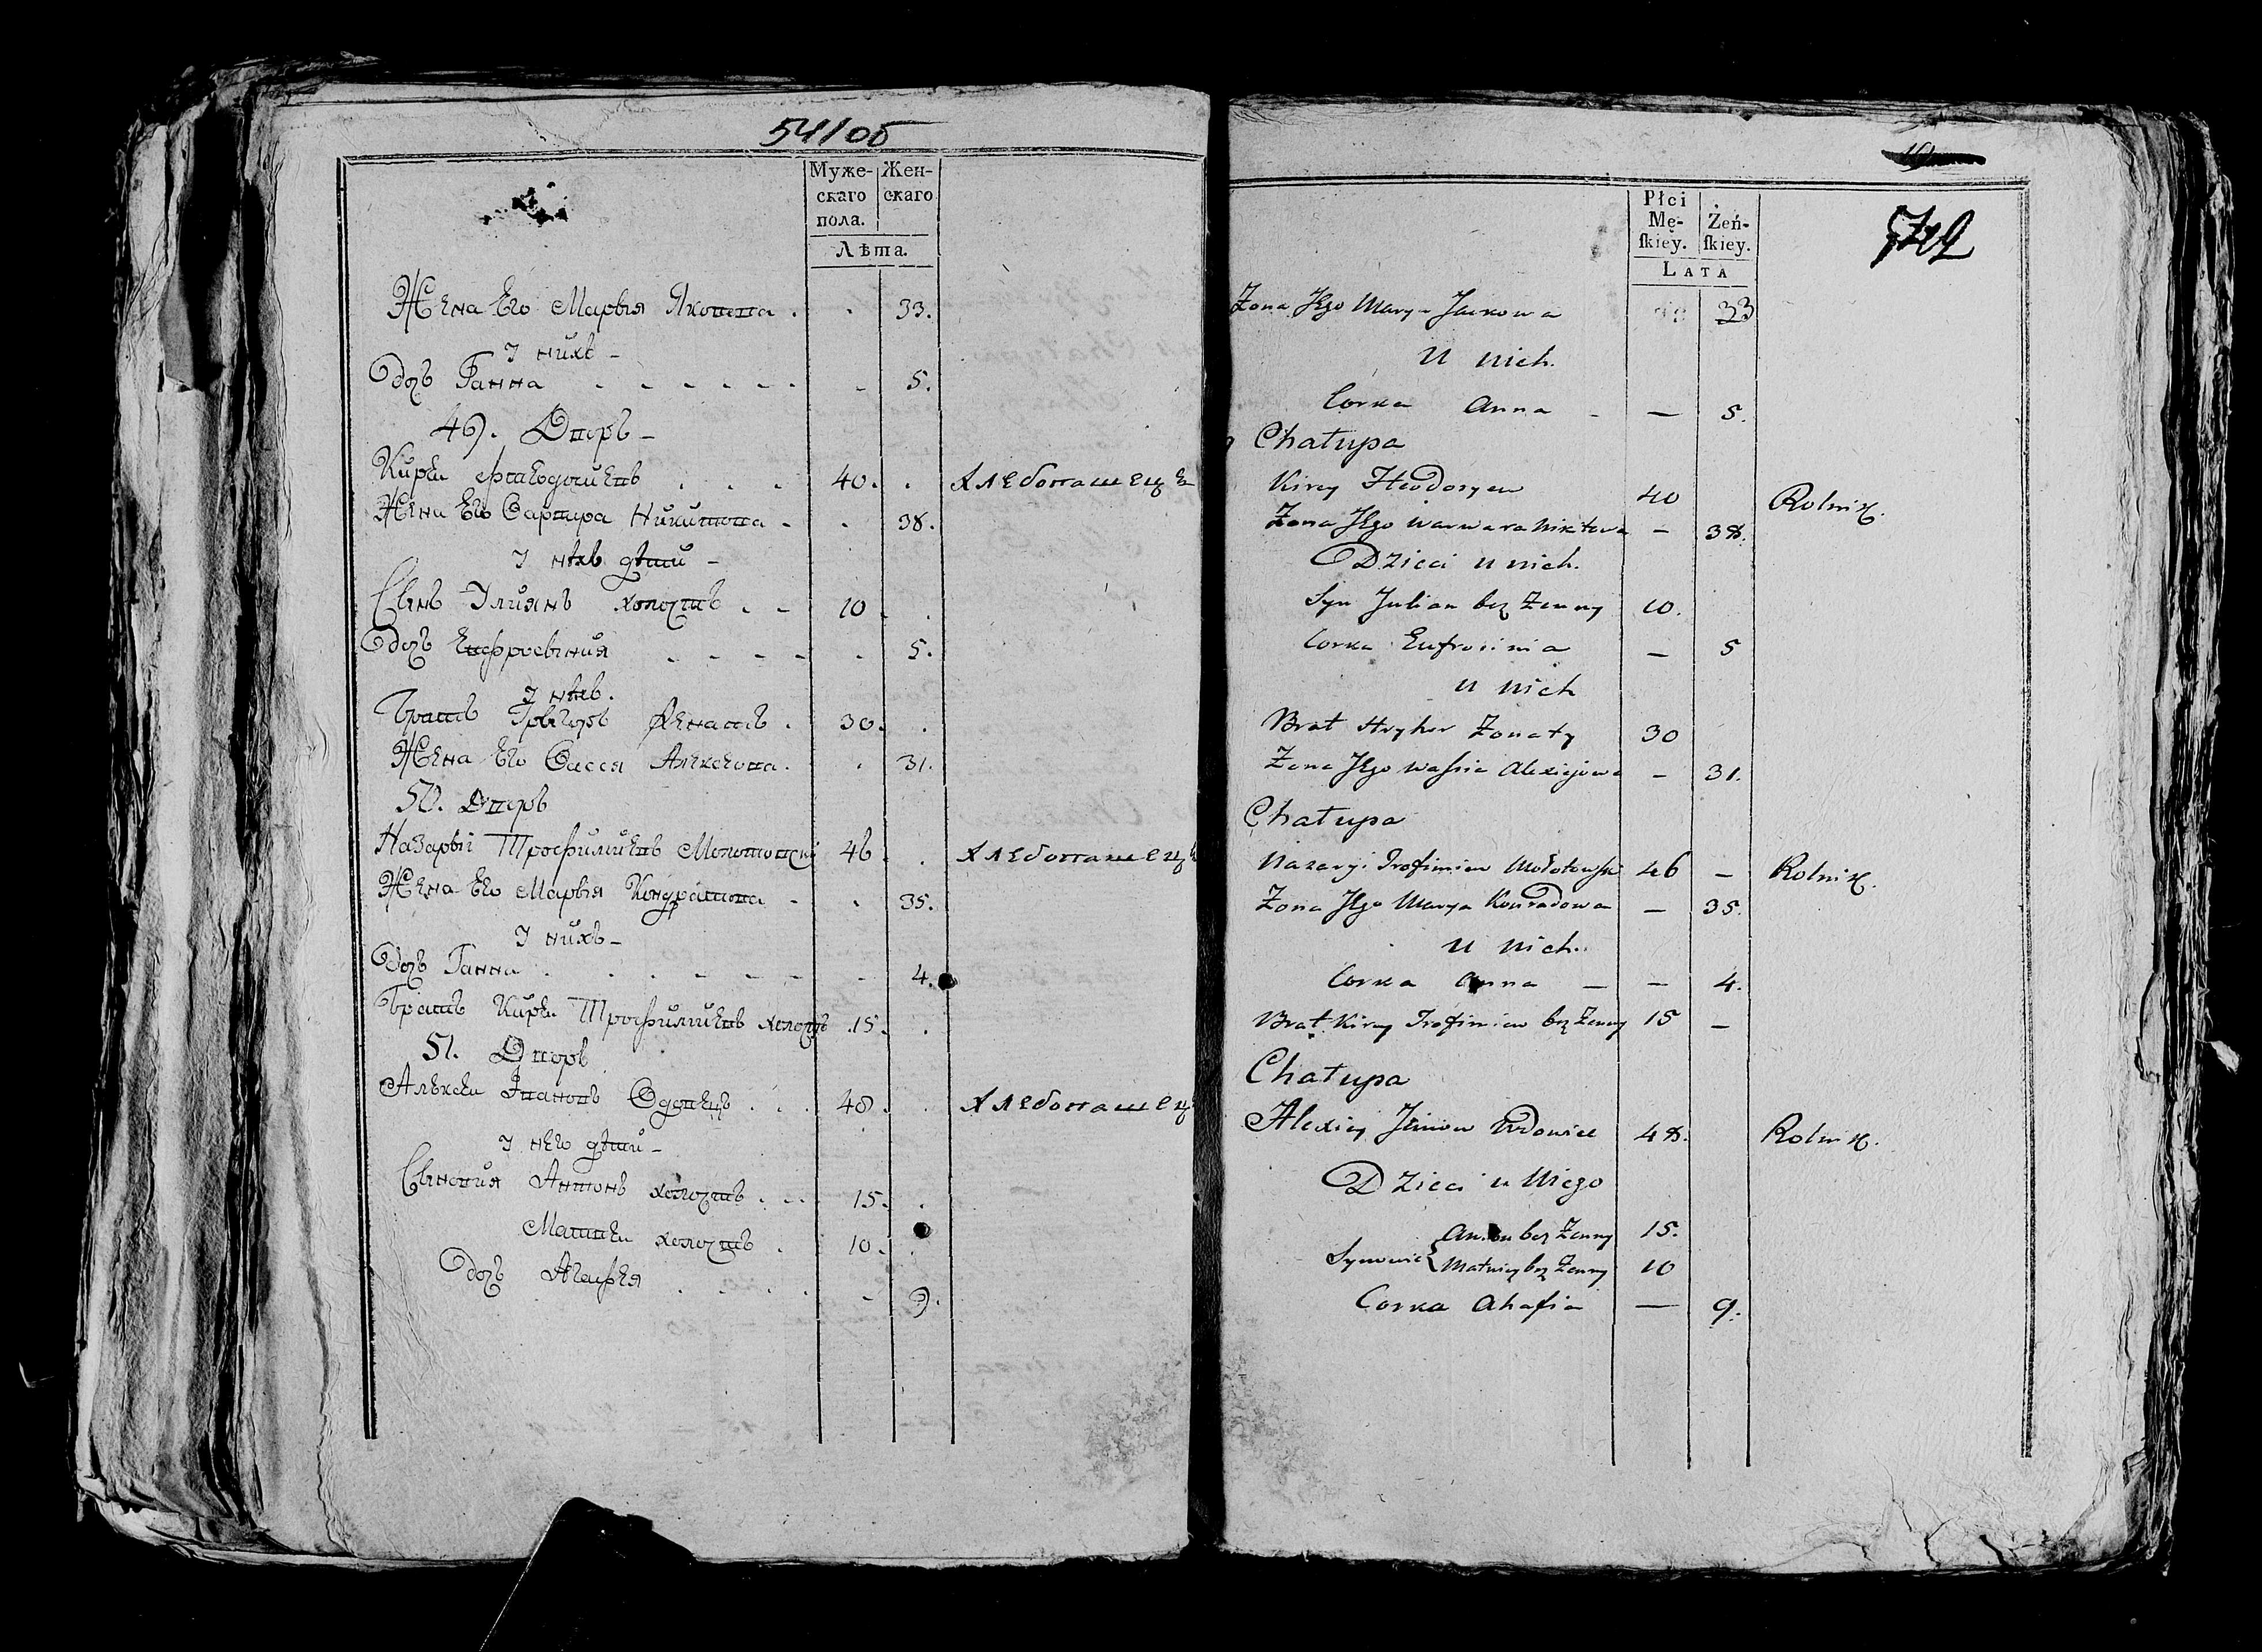 54/об
Муже-
скаго
пола.
Жен-
скаго
Лѣта.
Жена Его Марвія Яковова . . 33.
У нихъ -
Дочь Ганна - - - - - - - 5.
49. Дворъ -
Кирѣи Фтеодоріевъ . . . 40. . Хлебопашецъ
Жена Его Варвара Никитова - . 38.
У нихъ дѣти -
Сынъ Улиянъ холостъ . - 10 .
Дочь Евфросиния - - - - - 5.
У нихъ.
Братъ Григоръ Женатъ . 30. .
Жена Его Васся Алексеова . . 31.
50. Дворъ
Назарьі Трофимиевъ Молотовскі 46 . . Хлебопашецъ
Жена Его Марвія Кондратова - . 35.
У нихъ -
Дочь Ганна . . . - - - - 4.
Братъ Кирѣи Трофимиевъ холостъ 15. .
51. Дворъ
Алексеи Ивановъ Вдовецъ . . . 48. . Хлебопашец
У него дѣти -
Сыновия Антонъ холостъ . . . 15. .
Матвеи холостъ . 10. .
Дочь Агафея . . . . - 9.
Płci
Mę-
ſkiey.
Żeń-
ſkiey.
LATA
Żona Jego Marya Jackowa 33
U nich.
Corka Anna - — 5.
Chatupa
Kirey Hteodoryew 40 Rolnik.
Żona Jego Warwara Nikitova — 38.
Dzieci u nich.
Syn Julian bez Żenny 10.
Corka Eufrosinia — 5
u nich
Brat Hryhor Żonaty 30
Żona Jego Waſsia Alexiejowa — 31.
Chatupa
Nazaryi Trofimiew Mołotowski 46 — Rolnik.
Żona Jego Marya Konradowa — 35.
U nich.
Corka Anna — — 4.
Brat Kirey Trofimiew bez Żenny 15 —
Chatupa
Alexiey Wdowiec 48. Rolnik.
Dzieci u Niego
Synowie { Anton bez Żenny 15.
Matwiey bez Żenny 10
Corka Ahafia — 9.